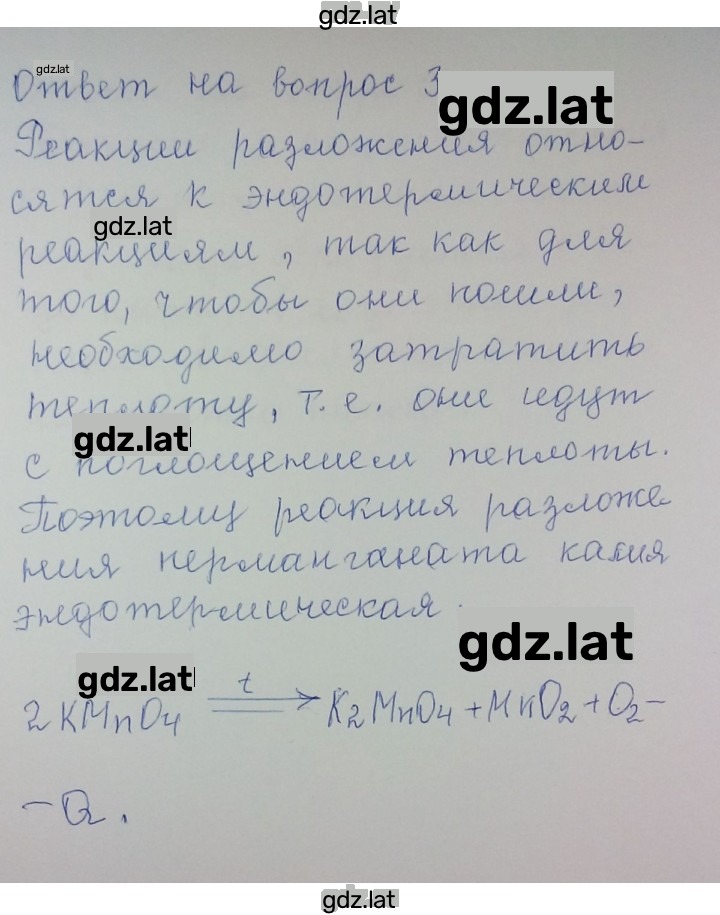 gdz.lat
gdz.lat
Ответ на вопрос 3
gdz.lat
Реакции разложения отно-
сятся к эндотермическим
gdz.lat
реакциям, так как для
того, чтобы они пошли,
необходимо затратить
теплоту, т.е. они идут
gdz.lat
с поглощением теплоты.
Поэтому реакция разложе-
ния перманганата калия
эндотермическая.
gdz.lat
gdz.lat
2KMnO4 t K2MnO4+MnO2+O2-
-Q.
gdz.lat